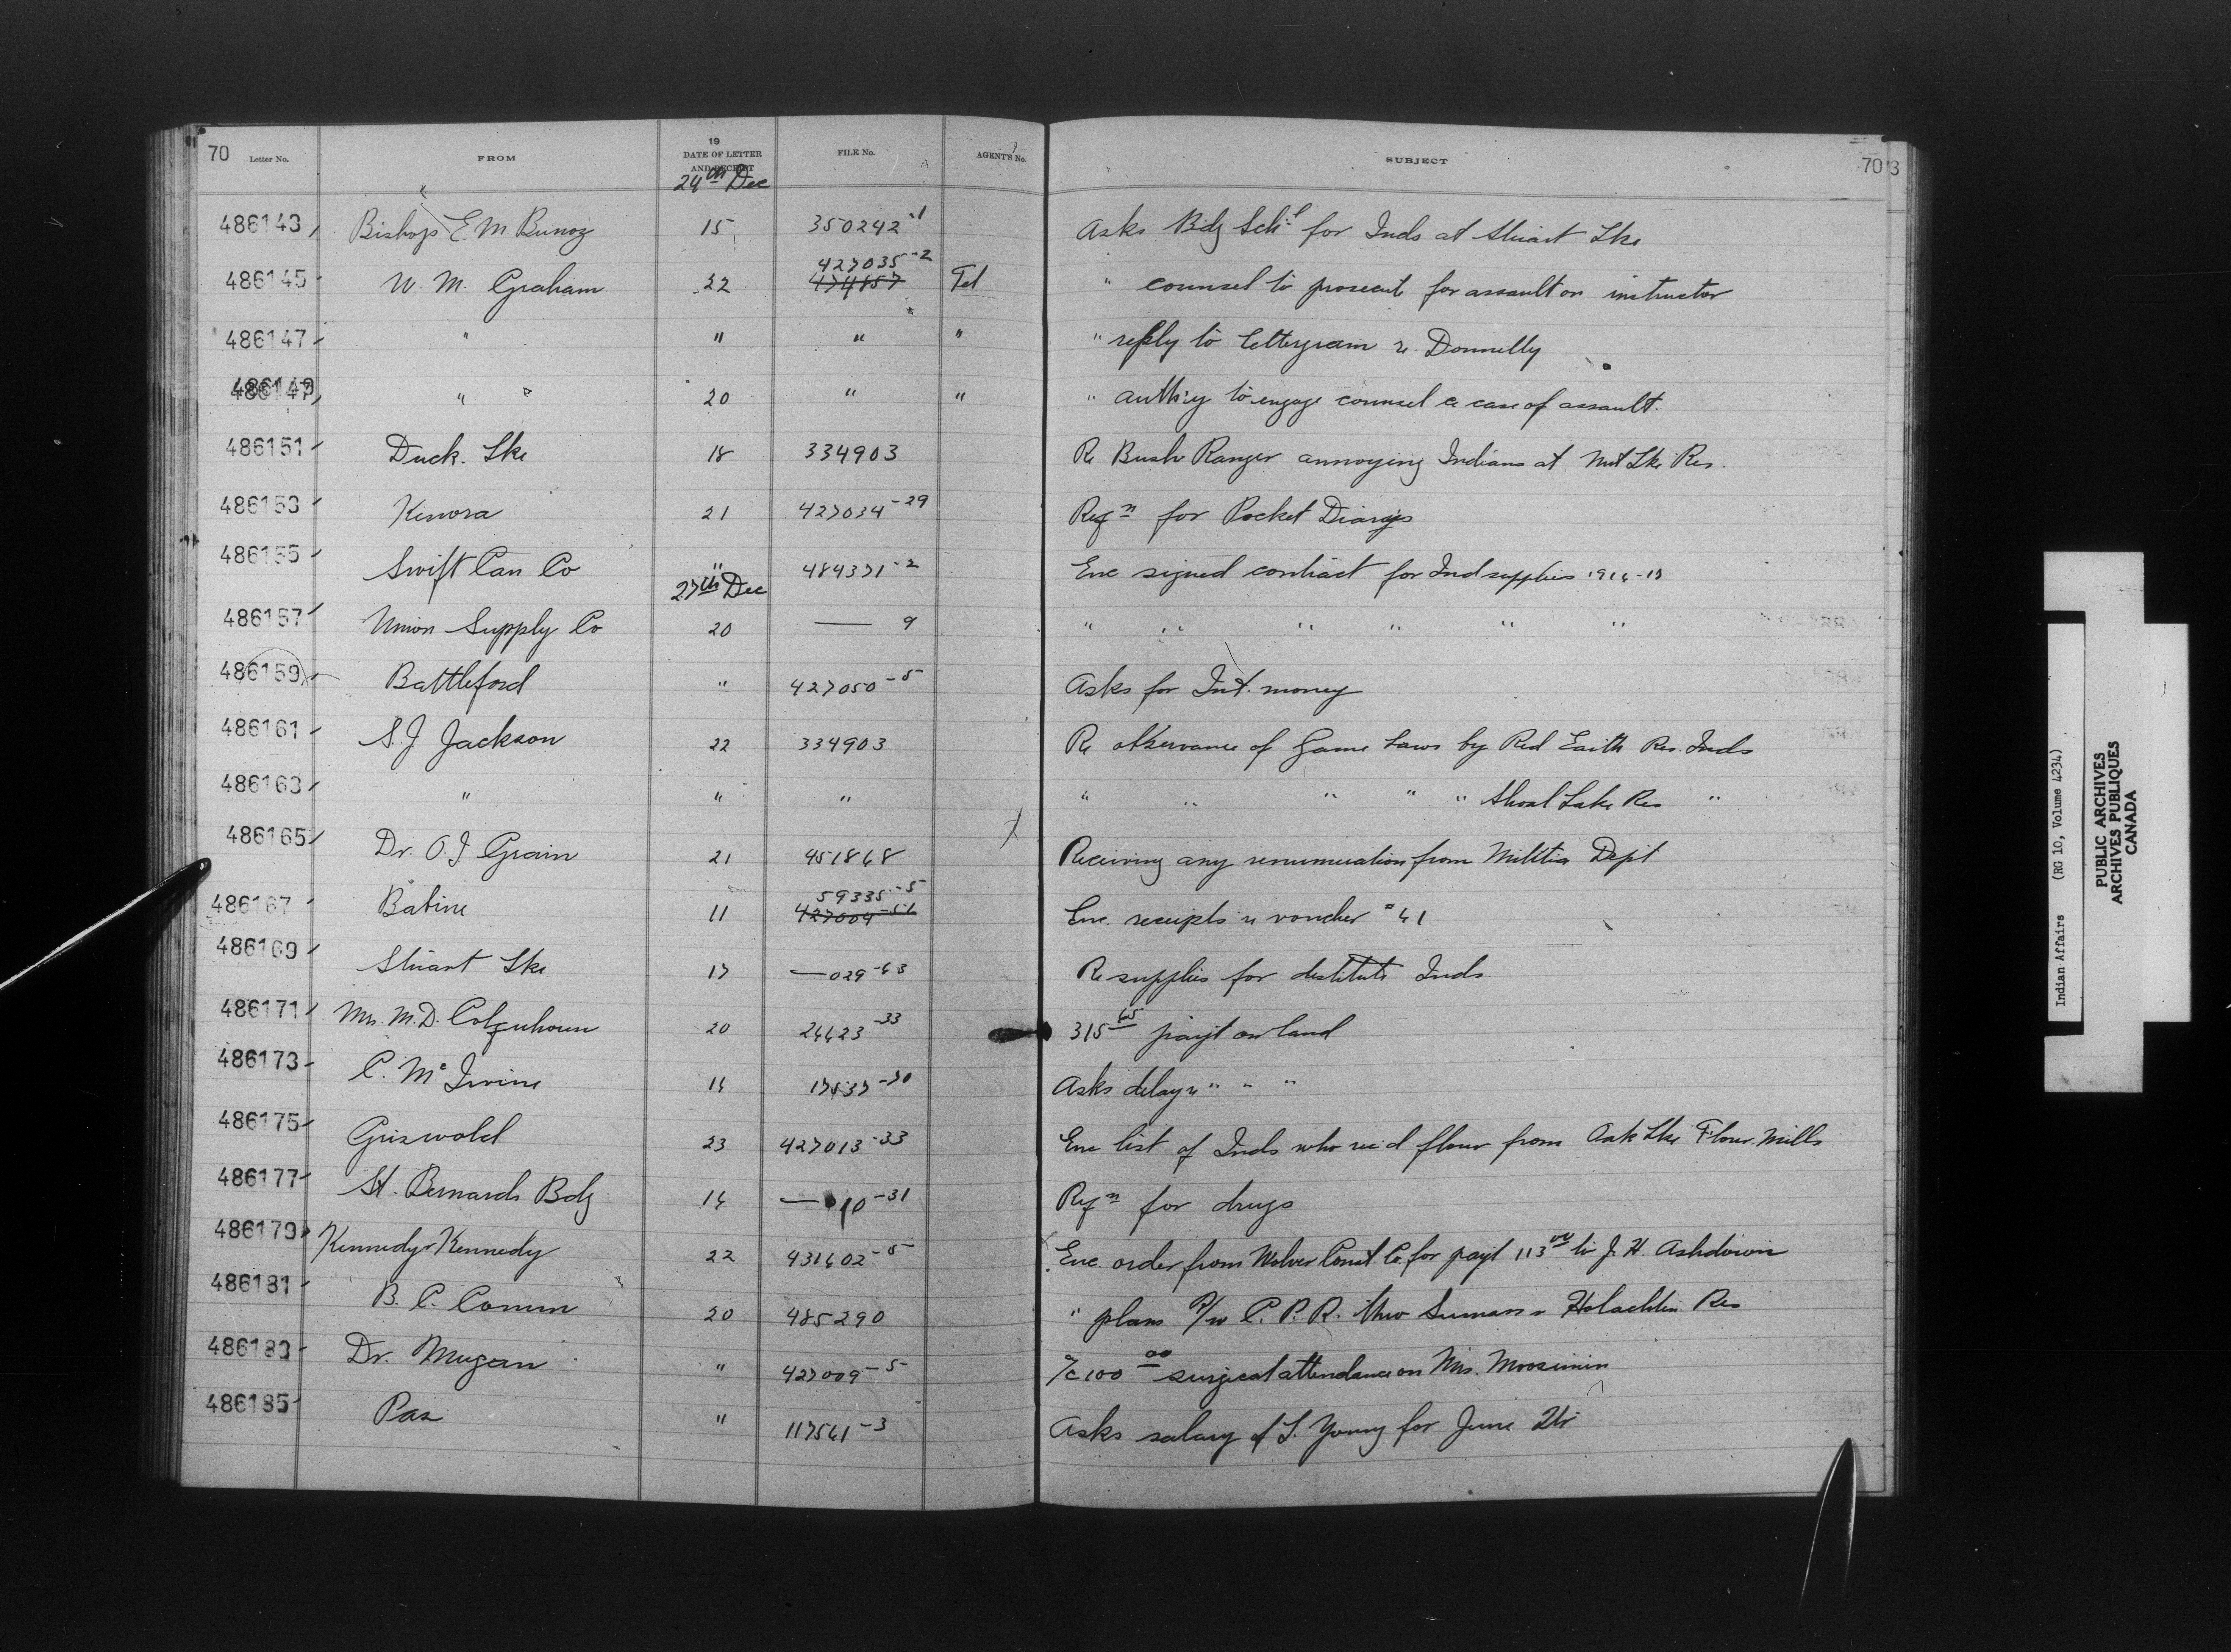 70 Letter No. FROM 19 DATE OF LETTER AND RECEIPT FILE No. AGENT'S No. SUBJECT 70 3
24th Dec
486143 Bishop E. M. Bunoz 15 350242-1 Asks Bdg Schl for Inds at Stuart Lke
427035-2
486145 W. M. Graham 22 474857 Tel " counsel to prosecute for assault on instructor
486147 " " " " " reply to lettergram re Donnelly
486149 " " 20 " " " auth'y to engage counsel re case of assault.
486151 Duck Lke 18 334903 Re Bush Ranger annoying Indians at Lke Res.
486153 Kenora 21 427034-29 Reqn for Pocket Diarys
486155 Swift Can Co " 484371-2 Enc signed contract for Ind supplies
27th Dec
486157 Union Supply Co 20 — 9 " " " " " "
486159 Battleford " 427050-5 Asks for Int. money
486161 S. J Jackson 22 334903 Re observance of Game Laws by Red Earth Res. Inds
486163 " " " " " " " " Shoal Lake Res "
486165 Dr. O. I Grain 21 451868 Receiving any renumeration from Militia Dept
59335-5
486167 Babine 11 427004-51 Enc. receipts re voucher # 61
486169 Stuart Lke 17 — 029-63 Re supplies for destitute Inds
486171 Mrs. M. D. Colquhoun 20 26623-33 315 65 payt on land
486173 C. Mc Irvine 16 17537-70 Asks delay re " " "
486175 Griswold 23 427013-33 Enc list of Inds who rec'd flour from Oak Lke Flour Mills
486177 St. Bernards Bdg 16 — 010-31 Reqn for drugs
486179 Kennedy & Kennedy 22 431602-5 Enc. order from Const. Co. for payt 113 00 to J. H. Ashdown
486181 B. C. Comm 20 485290 " plans R/W C. P. R. thro Sumass & Res
486183 Dr. Mugan " 427009-5 a/c 100 00 surgical attendance on Mrs. Moosimin
486185 Pas " 117561-3 Asks salary of L. Young for June Qtr
Indian Affairs (RG 10, Volume 4234)
PUBLIC ARCHIVES
ARCHIVES PUBLIQUES
CANADA